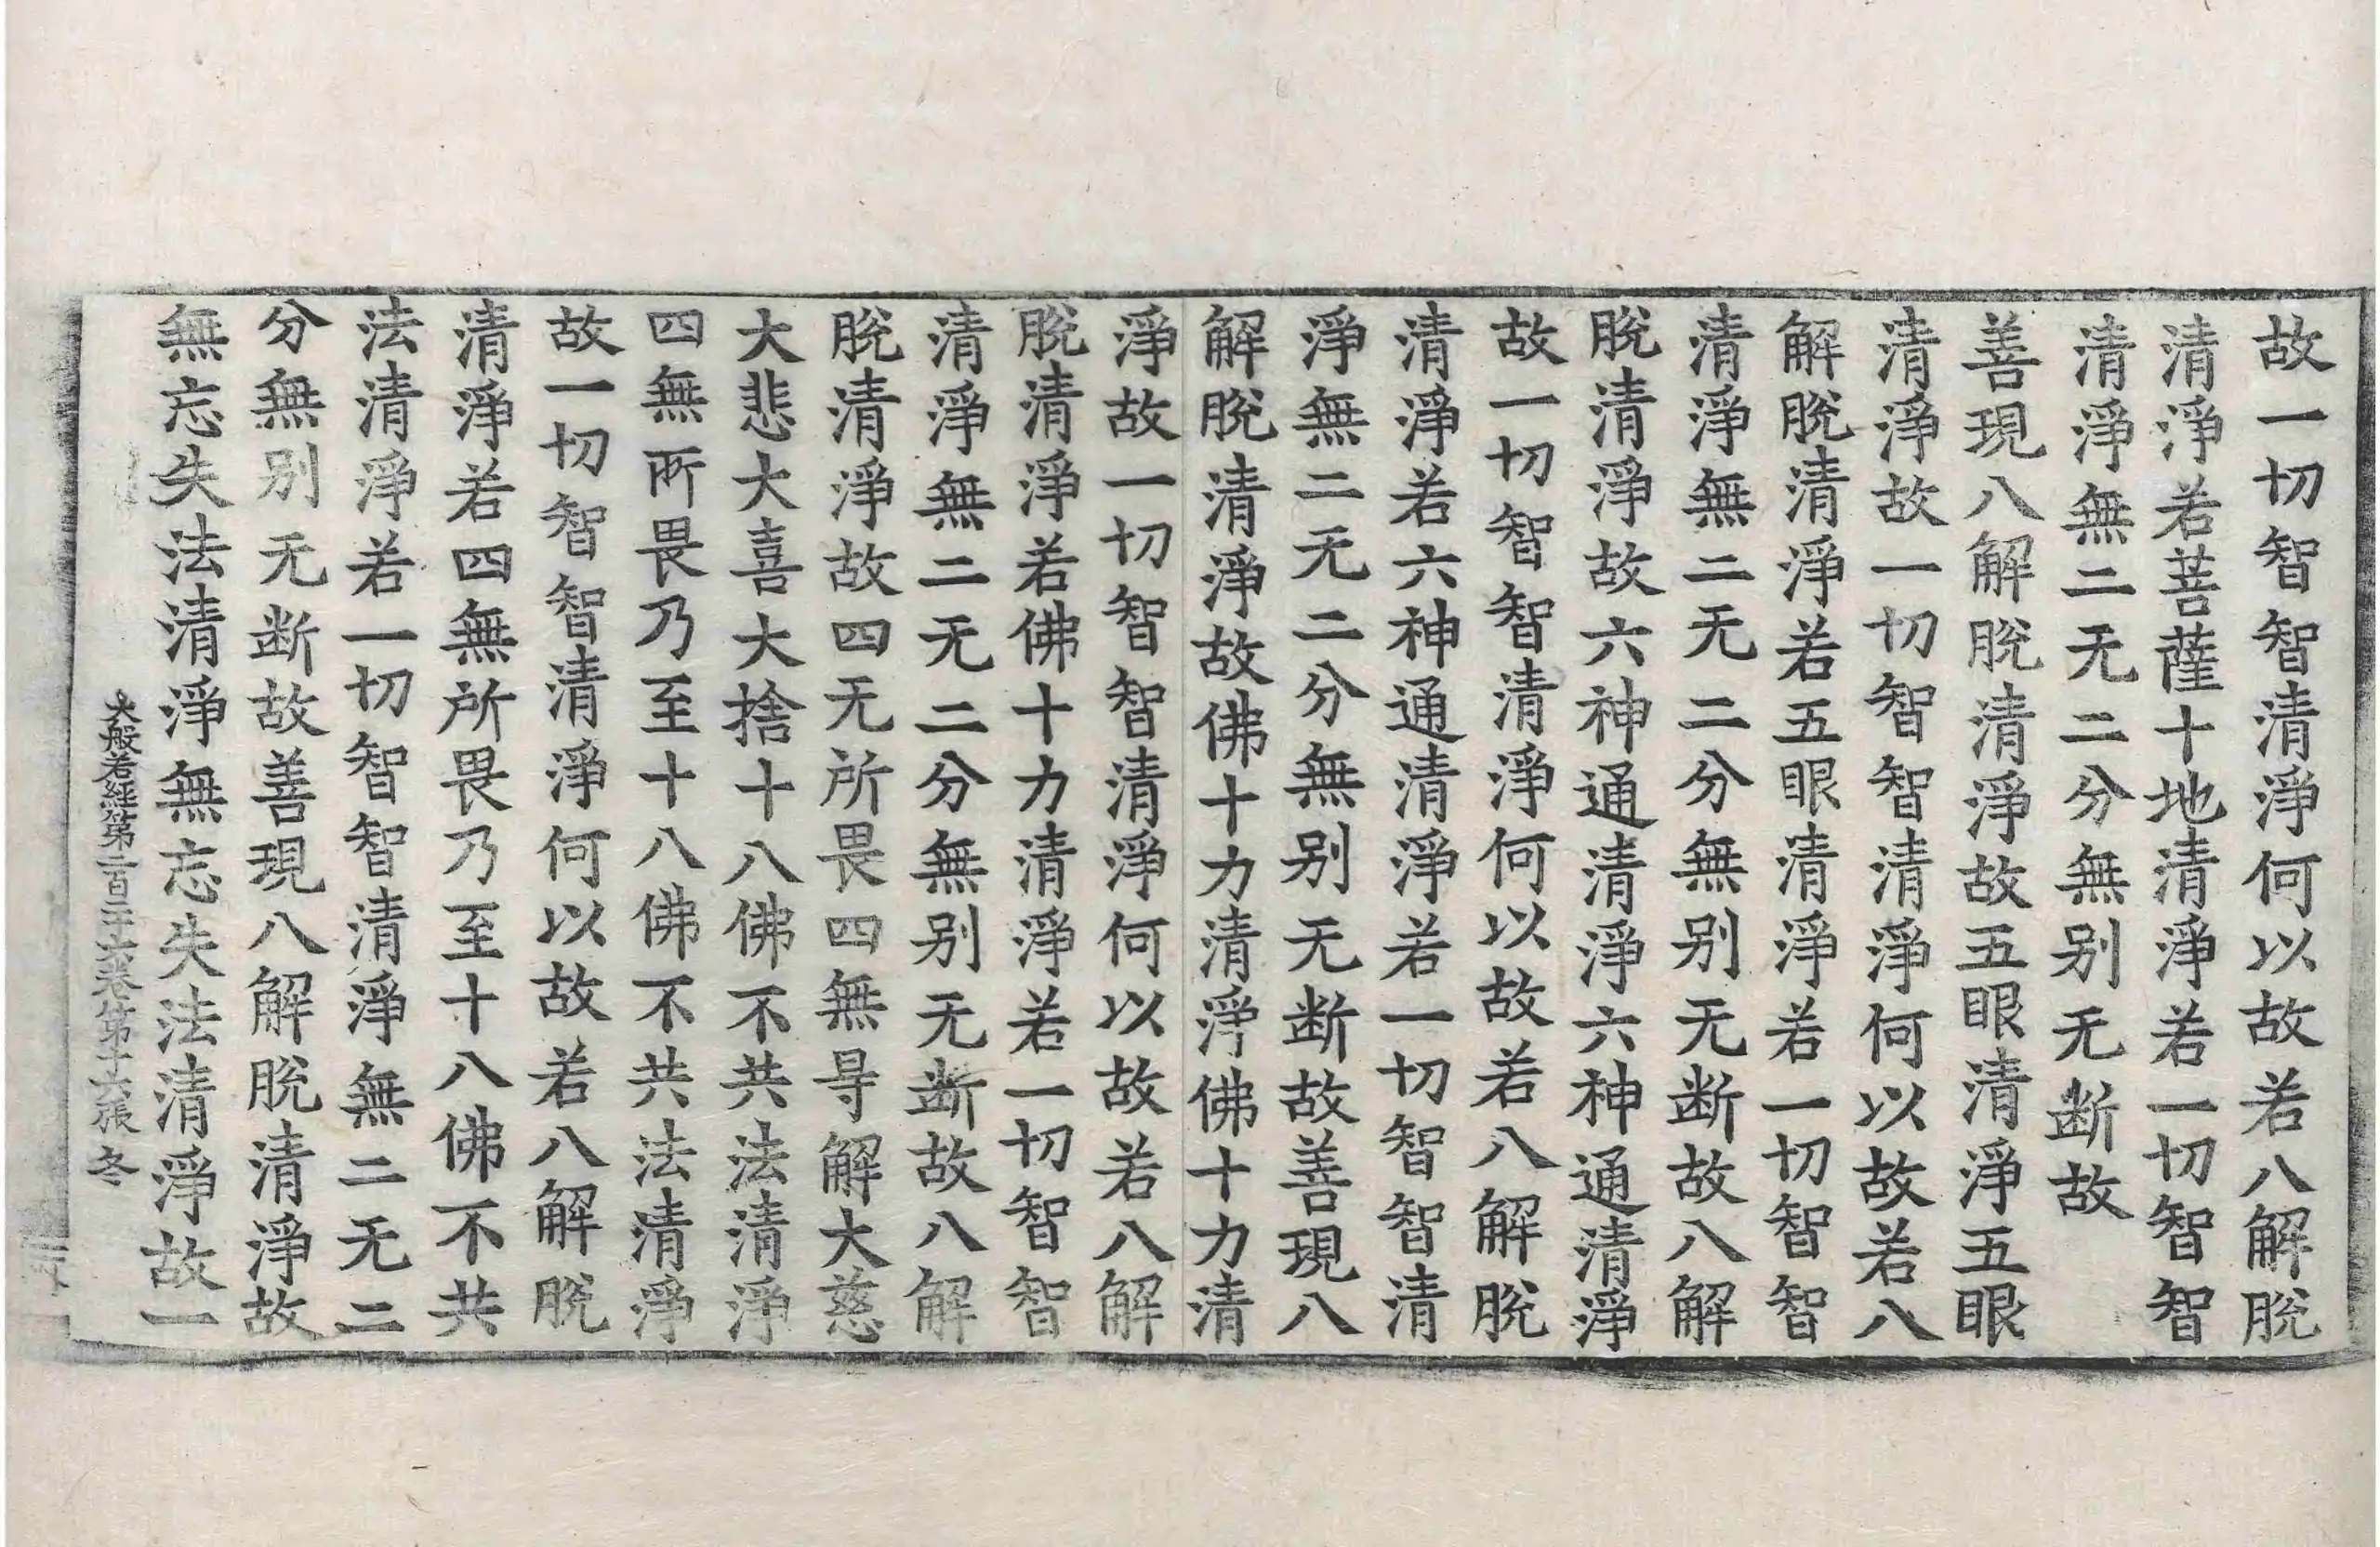 故一切智智清淨何以故若八解脫
清淨若菩薩十地清淨若一切智智
清淨無二无二分無别无断故
善現八解脫清淨故五眼清淨五眼
清淨故一切智智清淨何以故若八
解脫清淨若五眼清淨若一切智智
清淨無二无二分無别无断故八解
脫清淨故六神通清淨六神通清淨
故一切智智清淨何以故若八解脫
清淨若六神通清淨若一切智智清
淨無二无二分無别无断故善現八
解脫清淨故佛十力清淨佛十力清
淨故一切智智清淨何以故若八解
脫清淨若佛十力清淨若一切智智
清淨無二无二分無别无断故八解
脫清淨故四无所畏四無㝵解大慈
大悲大喜大捨十八佛不共法清淨
四無所畏乃至十八佛不共法清淨
故一切智智清淨何以故若八解脫
清淨若四無所畏乃至十八佛不共
法清淨若一切智智清淨無二无二
分無别无断故善現八解脫清淨故
無忘失法清淨無忘失法清淨故一
大般若経第二百三十六卷第十六張 冬